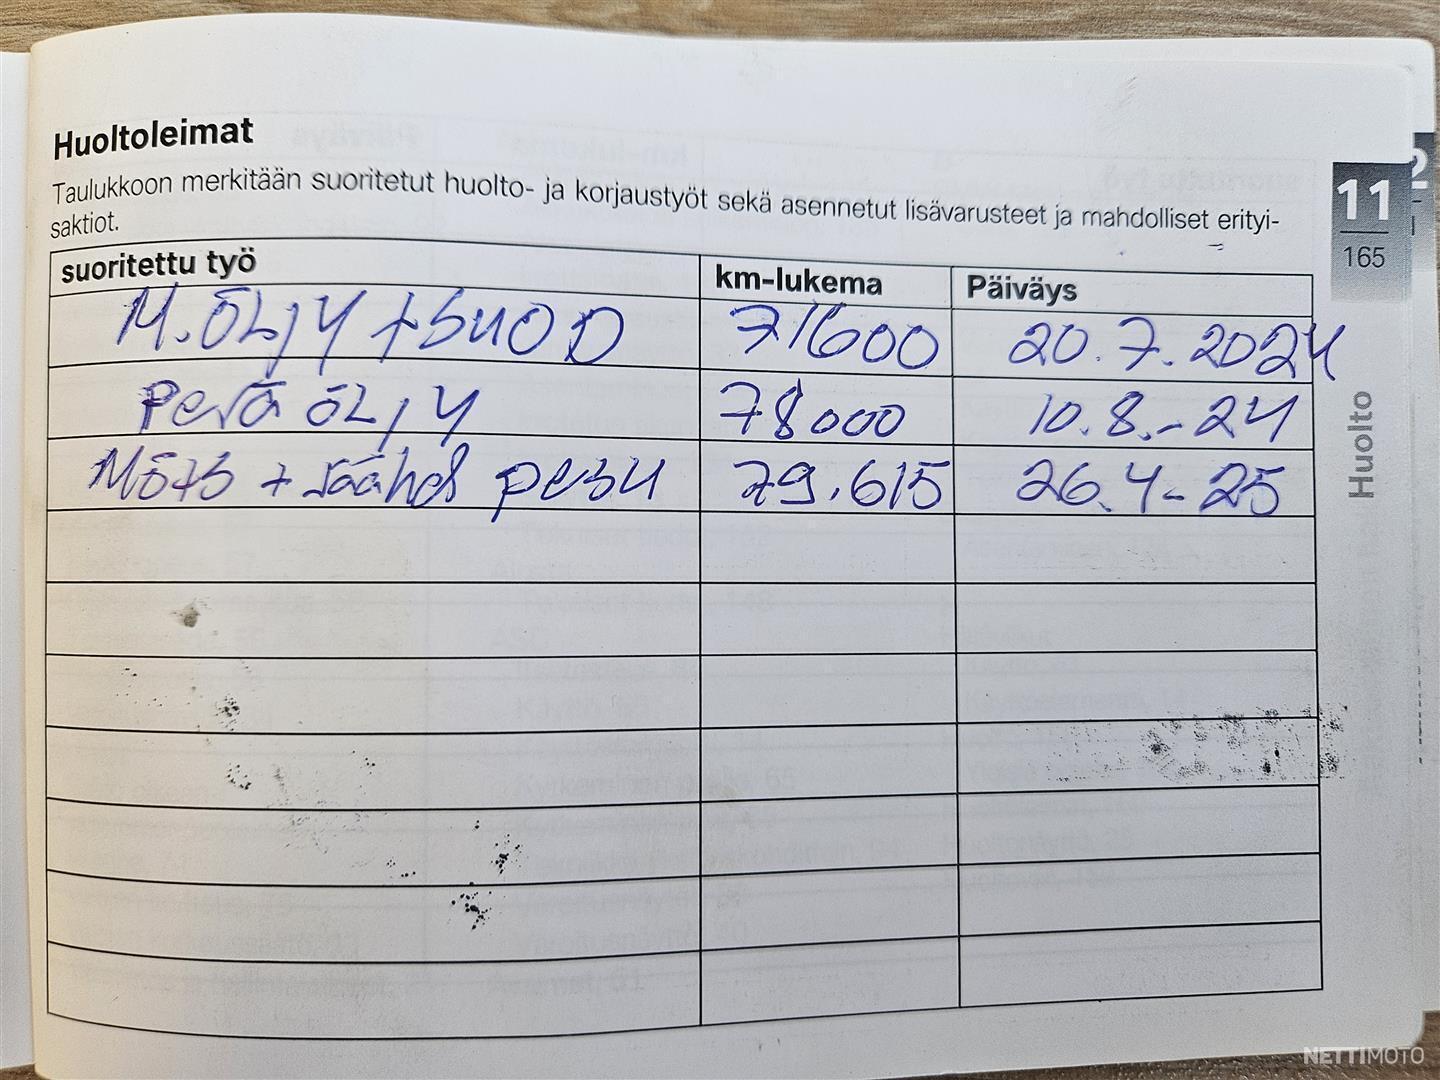 Huoltoleimat
Taulukkoon merkitään suoritetut huolto- ja korjaustyöt sekä asennetut lisävarusteet ja mahdolliset erityi-
saktiot.
suoritettu työ km-lukema Päiväys
M.ÖLJY + SUOD 71600 20.7.2024
Perä ÖLJY 78000 10.8.-24
pesu 79.615 26.4-25
11
165
Huolto
NETTIMOTO